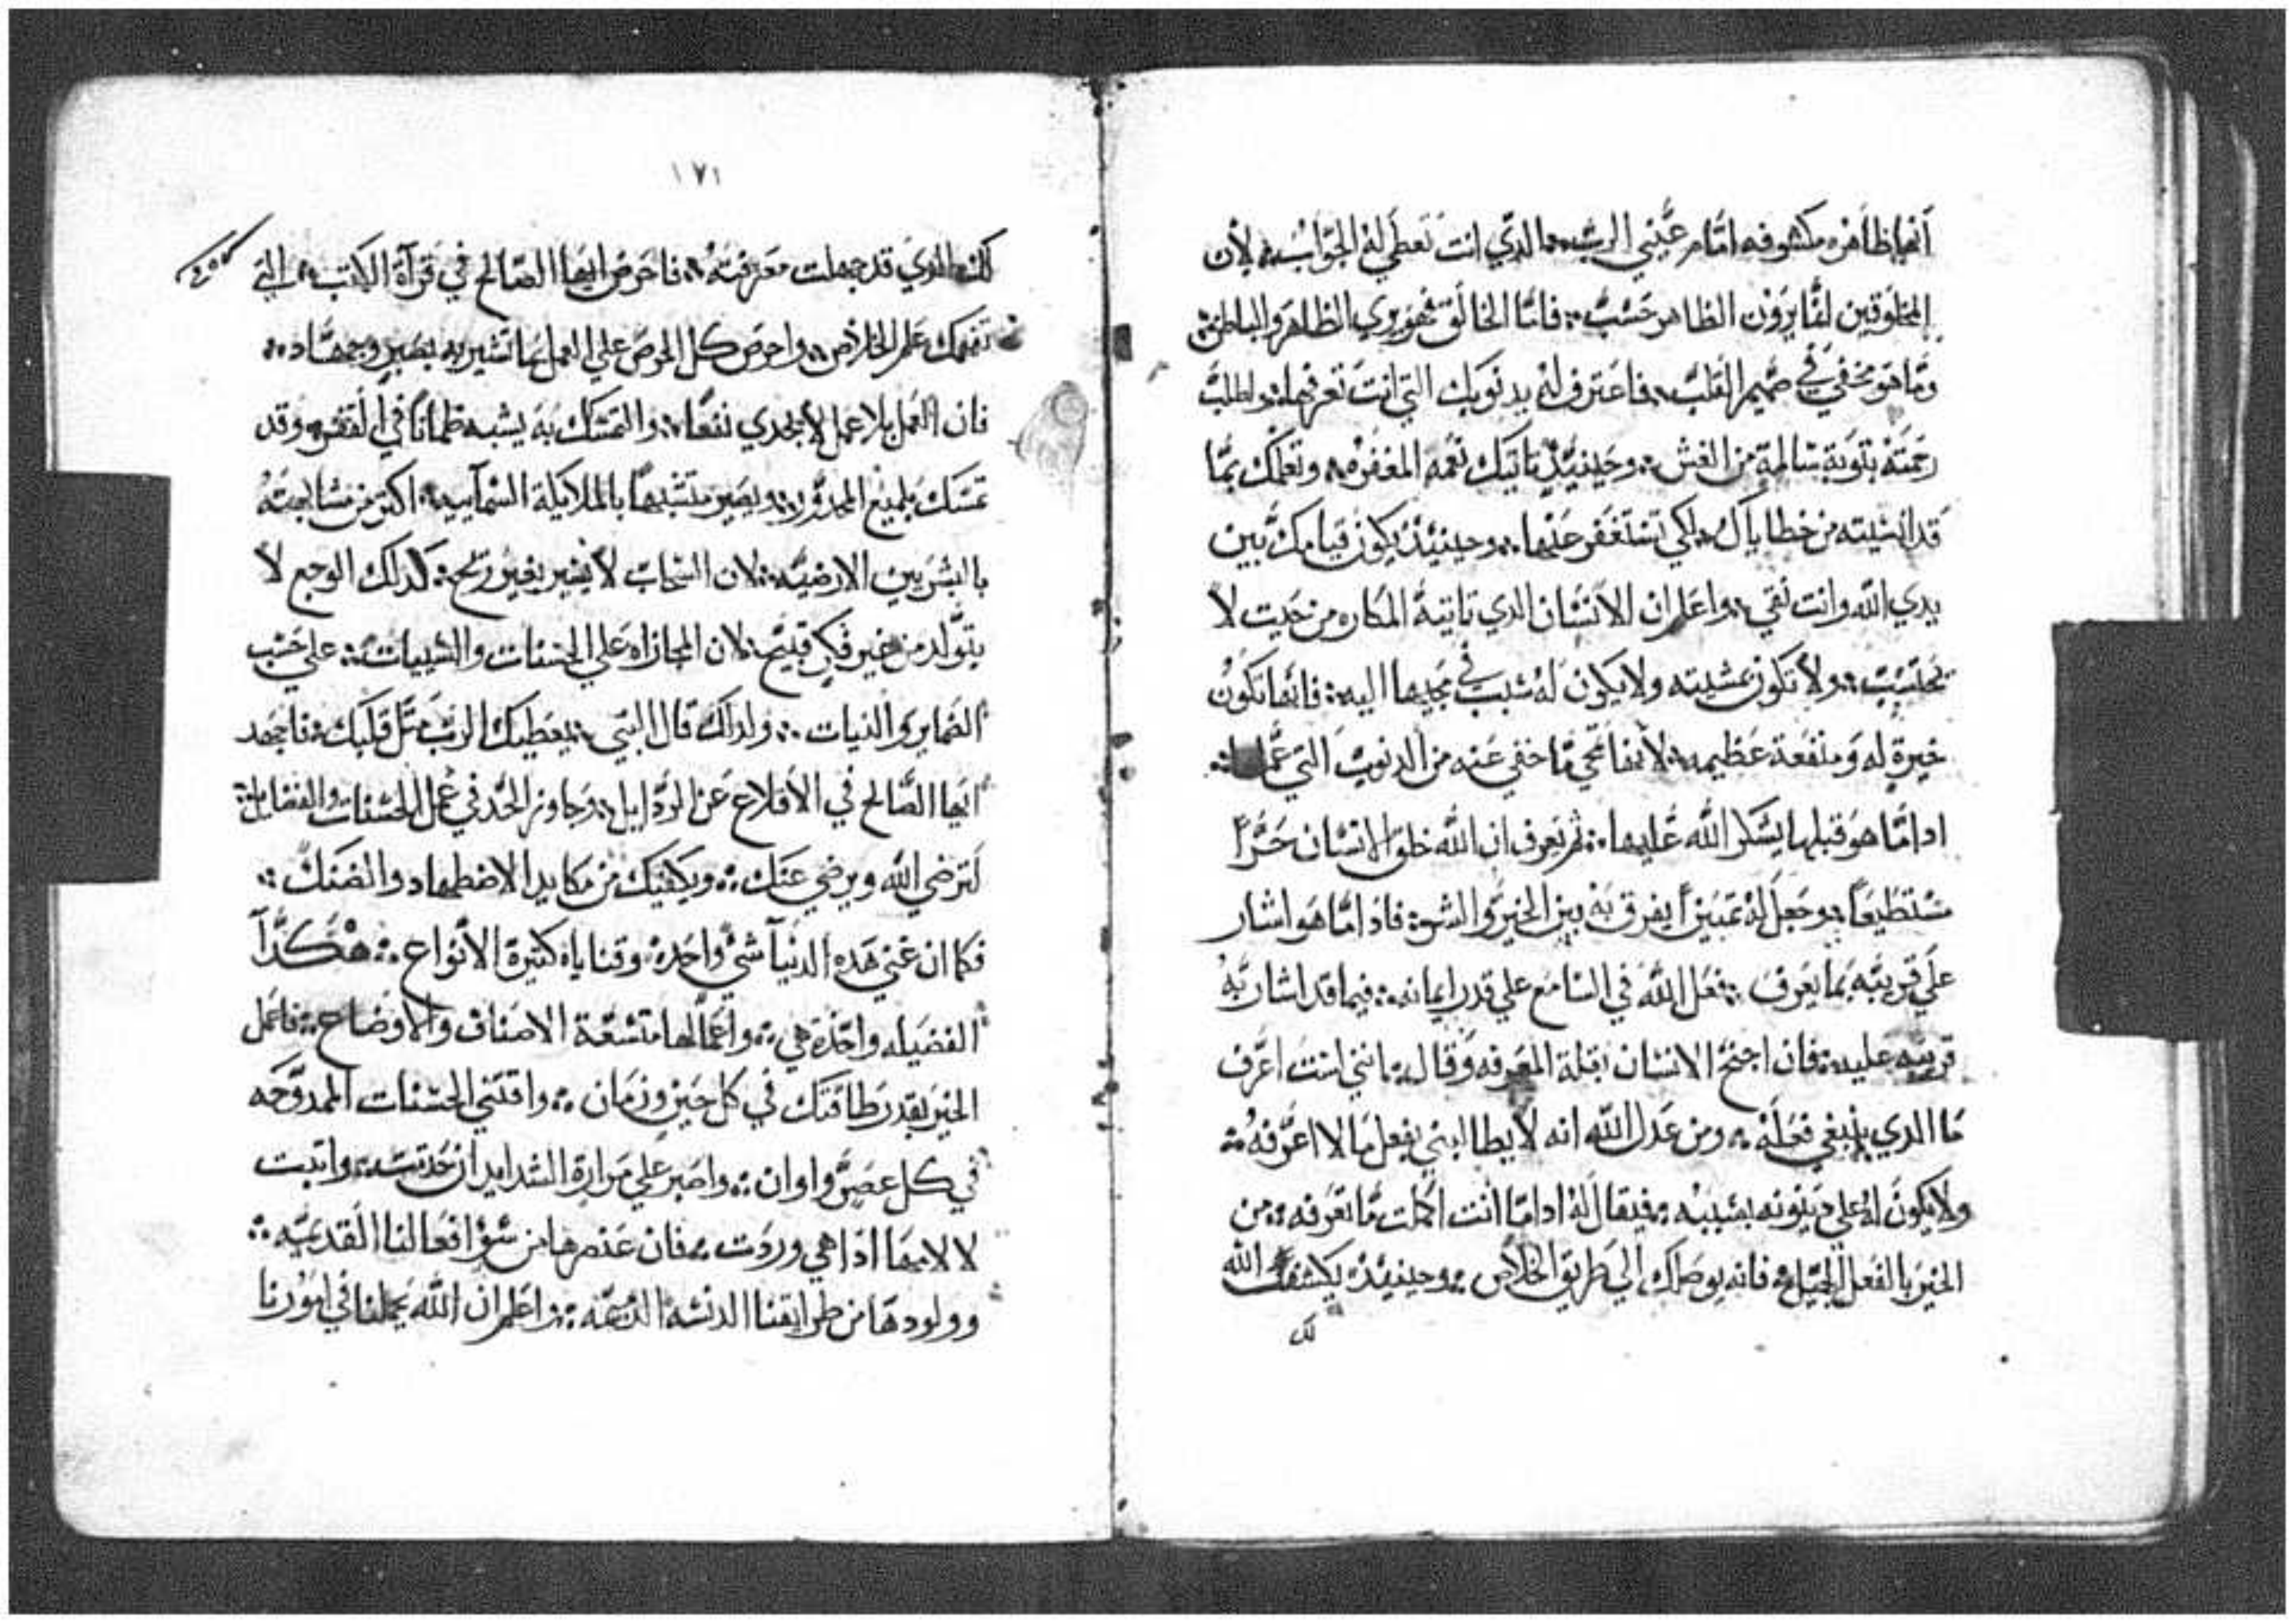 انها ظاهره مكشوفه امام عيني الرب الدي انت تعطي له الجواب لأن
المخلوقين انما يرون الظاهر حسب فاما الخالق فهو يري الظاهر والباطن
وما هو مخفي في صميم القلب فاعترف له بدنوبك التي انت تعرفها واطلب
رحمته بتوبة سالمة من الغش وحينيد تاتيك نعمه المغفره وتعلمك بما
قد انسيته من خطاياك لكي تستغفر عنها وحينيد يكون قيامك بين
يدي الله وانت نقي واعلم ان الانسان الدي تاتيه المكاره من حيت لا
يحتسب ولا تكون بمشيته ولا يكون له سبب في مجيها اليه فانها تكون
خيرة له ومنفعة عظيمه لانها تمحي ما خفي عنه من الدنوب التي عملها
ادا ما هو قبلها بشكر الله عليها ثم يعرف ان الله خلق الانسان حرا
مستطيعا وجعل له تمييزا يفرق به بين الخير والشر فاد اما هو اشار
علي قريبه بما يعرف فعل الله في السامع علي قدر ايمانه فيما قد اشار به
قريبه عليه فان احتج الانسان بقلة المعرفه وقال انني لست اعرف
ما الدي ينبغي فعله ومن عدل الله انه لا يطالبني بفعل ما لا اعرفه
ولا يكون له علي دينونه بسببه فيقال له ادا ما انت اكملت ما تعرفه من
الخير بالفعل الجميل فانه يوصلك الي طريق الخلاص وحينيد يكشف الله
لك
١٧١
كلما الدي قد جهلت معرفته فاحرص ايها الصالح في قرآة الكتب التي
تفهمك علم الخلاص واحرص كل الحرص علي العمل بما تشير به بصبر وجهاد
فان العلم بلا عمل لا يجدي نفعا والتمسك به يشبه ظمانا في القفر وقد
تمسك بلميع المحدور ويصير متشبها بالملايكة السمآييه اكتر من مشابهته
بالبشريين الارضيه لان السحاب لا يسير بغير ريح كدلك الوجع لا
يتولد من غير فكر قبيح لان المجازاه علي الحسنات والسييات علي حسب
الضماير والنيات ولدلك قال النبي يعطيك الرب متل قلبك فاجهد
ايها الصالح في الاقلاع عن الردايل وجاوز الحد في عمل الحسنات والفضايل
لترضي الله ويرضي عنك ويكفيك من مكايد الاضطهاد والضنك
فكما ان غني هده الدنيا شي واحده وقناياه كتيرة الانواع هكدا
الفضيله واحده هي واعمالها متسعة الاصناف والاوضاع فاعمل
الخير بقدر طاقتك في كل حين وزمان واقتني الحسنات الممدوحه
في كل عصر واوان واصبر علي مرارة الشدايد ان حدتت واتبت
لالامها ادا هي وردت فان عنصرها من سؤ افعالنا القديميه
وولودها من طرايقنا الدنسه الدميمه واعلم ان الله يحملنا في امورنا